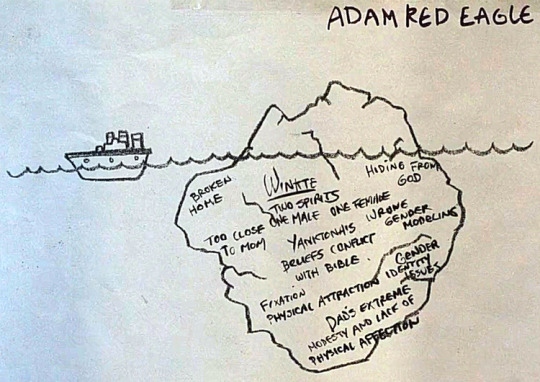 ADAM RED EAGLE
BROKEN
HOME
WINKTE
TWO SPIRITS
ONE MALE ONE FEMALE
HIDING FROM
GOD
TOO CLOSE
TO MOM
YANKTONAIS
BELIEFS CONFLICT
WITH BIBLE.
WRONG
GENDER
MODELING
FIXATION
PHYSICAL ATTRACTION
GENDER
IDENTITY
ISSUES
DAD'S EXTREME
MODESTY AND LACK OF
PHYSICAL AFFECTION